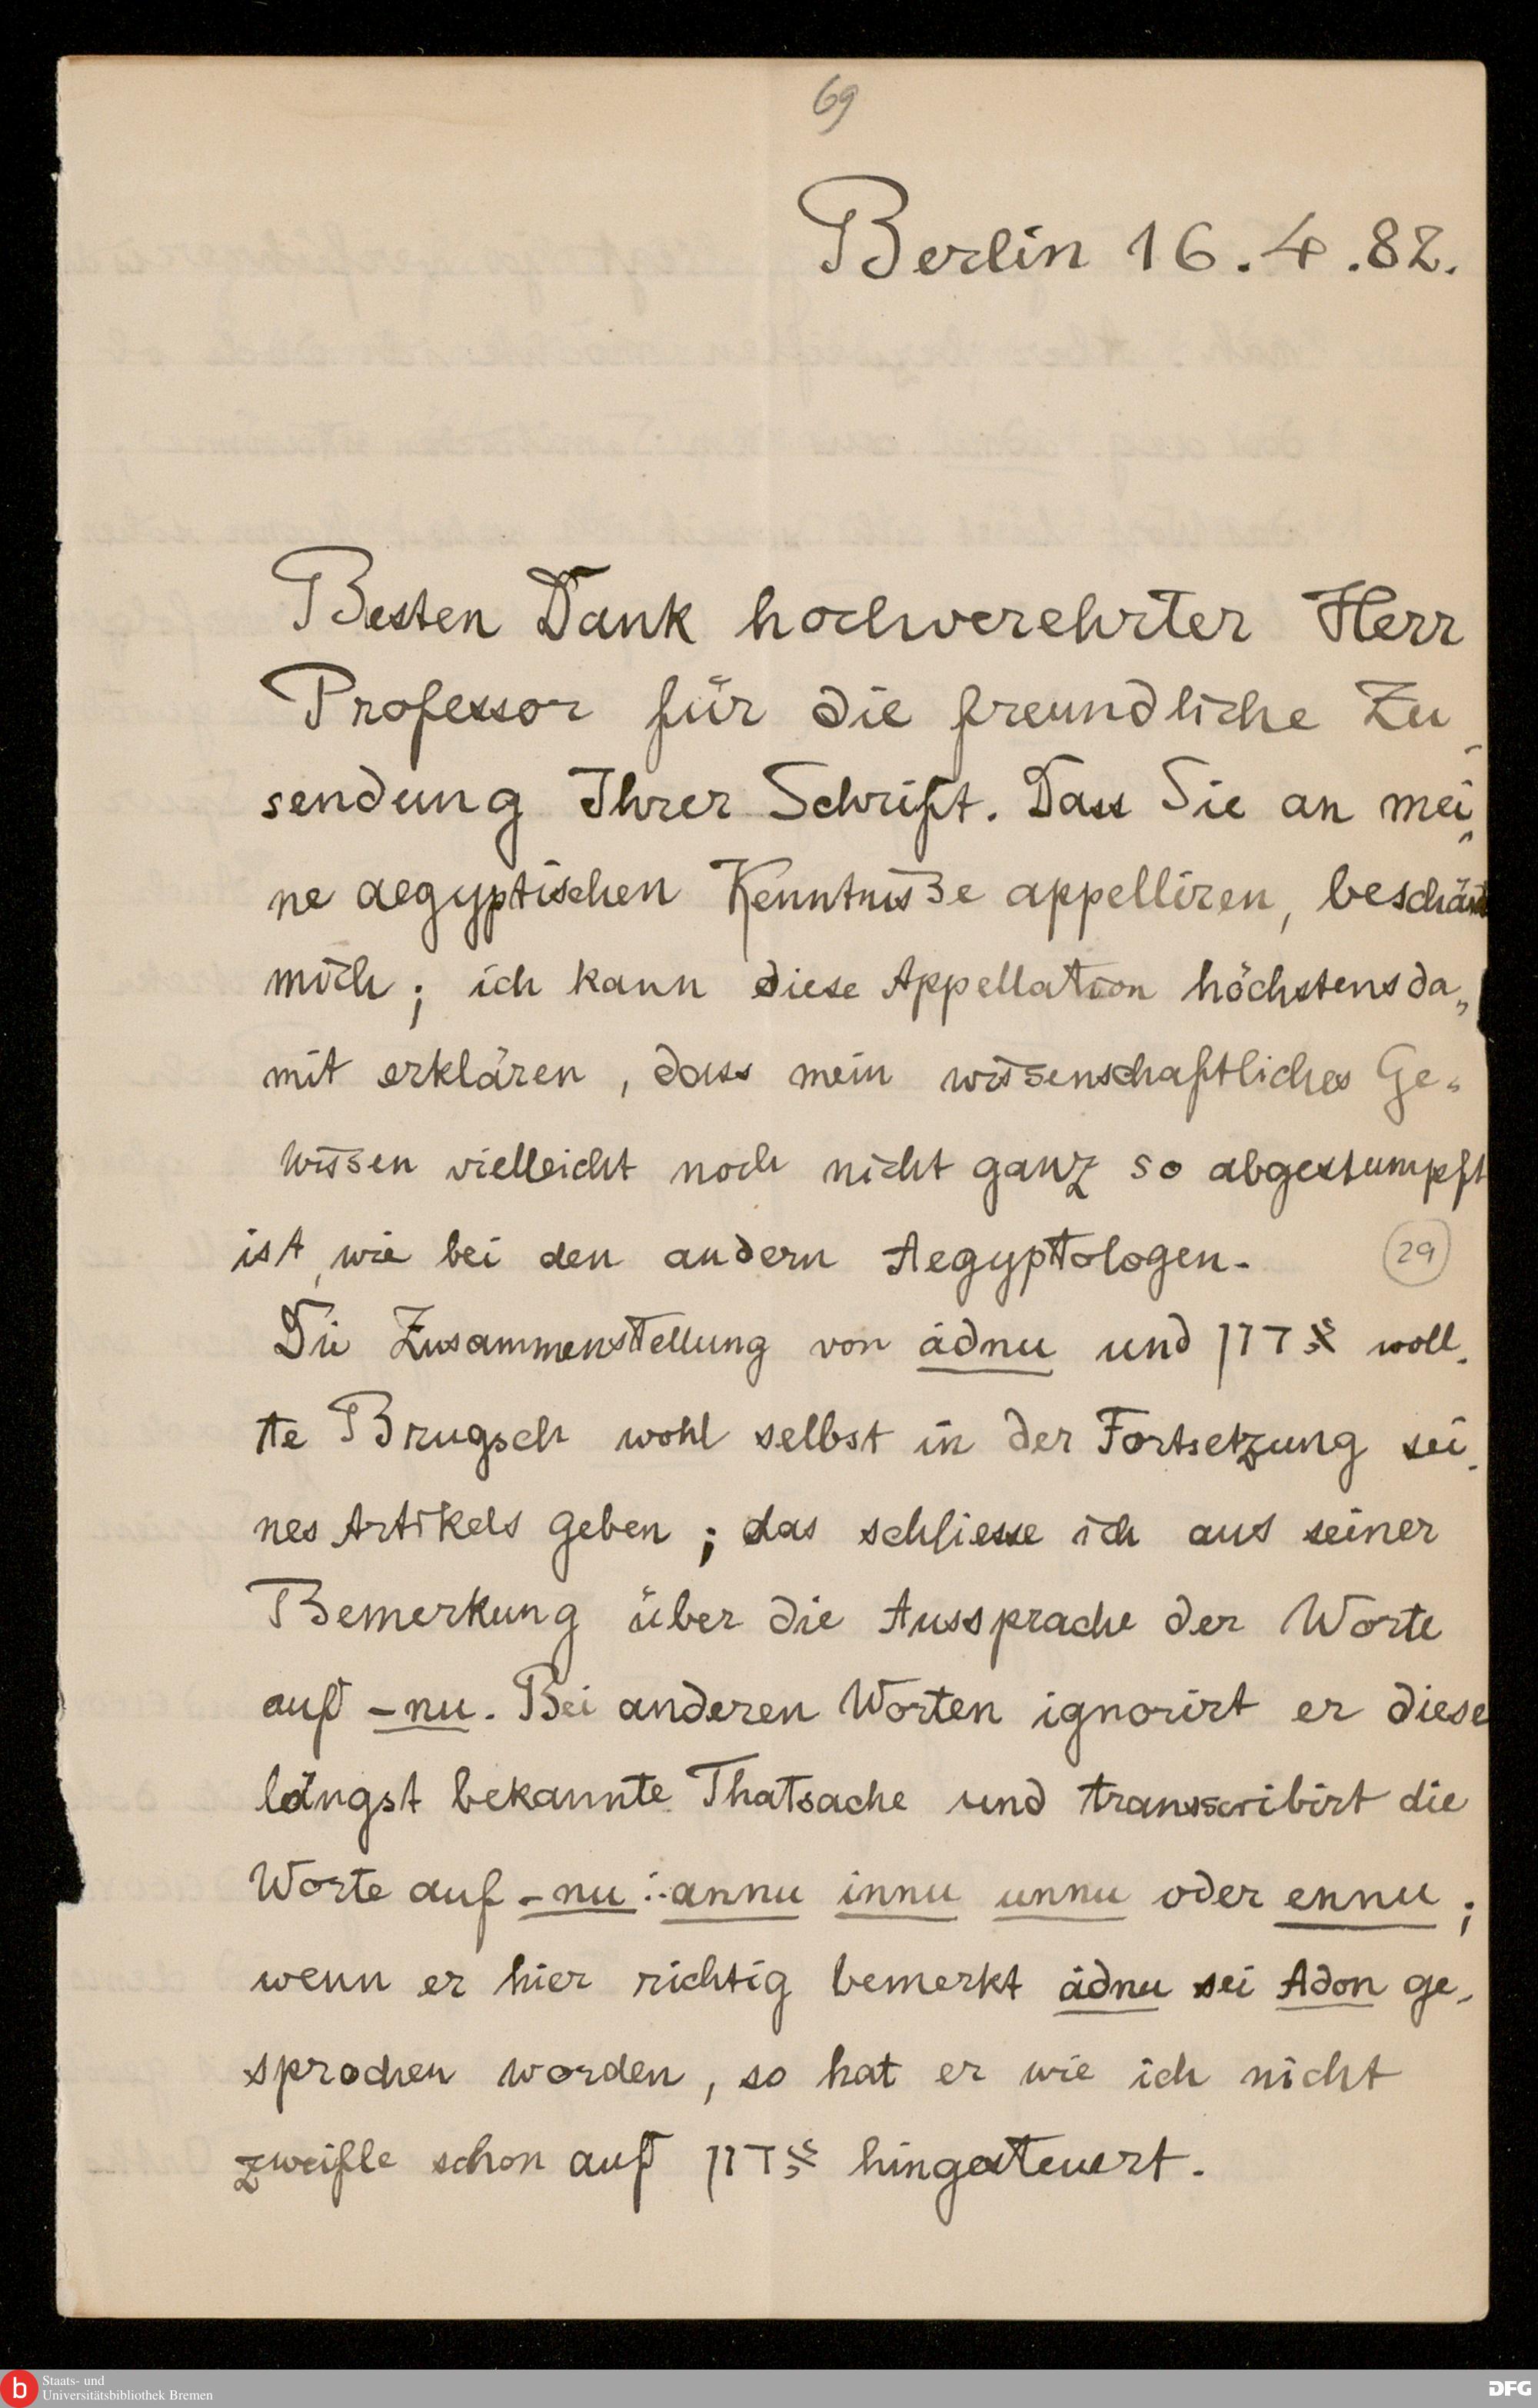 69
Berlin 16.4.82.
Besten Dank hochverehrter Herr
Professor für die freundliche Zu-
sendung Ihrer Schrift. Dass Sie an mei-
ne aegyptischen Kenntnisse appelliren, beschämt
mich; ich kann diese Appellation höchstens da-
mit erklären, dass mein wissenschaftliches Ge-
wissen vielleicht noch nicht ganz so abgestumpft
ist, wie bei den andern Aegyptologen.
29
Die Zusammenstellung von ȧdnu und אדון woll-
te Brugsch wohl selbst in der Fortsetzung sei-
nes Artikels geben; das schliesse ich aus seiner
Bemerkung über die Aussprache der Worte
auf -nu. Bei anderen Worten ignorirt er diese
längst bekannte Thatsache und transscribirt die
Worte auf -nu: annu innu unnu oder ennu;
wenn er hier richtig bemerkt ȧdnu sei Adon ge-
sprochen worden, so hat er wie ich nicht
zweifle schon auf אדון hingesteuert.
b Staats- und
Universitätsbibliothek Bremen
DFG